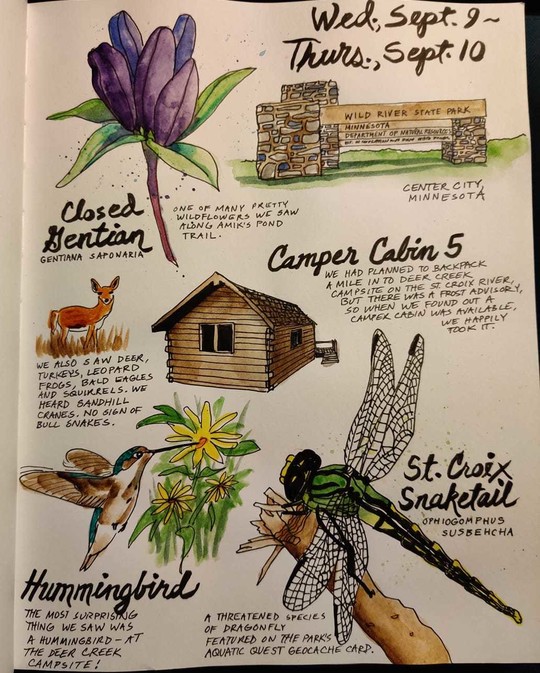 Wed., Sept. 9~
Thurs., Sept. 10
WILD RIVER STATE PARK
MINNESOTA
DEPARTMENT OF NATURAL RESOURCES
CENTER CITY,
MINNESOTA
Closed
Gentian
GENTIANA SAPONARIA
ONE OF MANY PRETTY
WILDFLOWERS WE SAW
ALONG AMIK'S POND
TRAIL.
Camper Cabin 5
WE HAD PLANNED TO BACKPACK
A MILE IN TO DEER CREEK
CAMPSITE ON THE ST. CROIX RIVER,
BUT THERE WAS A FROST ADVISORY,
SO WHEN WE FOUND OUT A
CAMPER CABIN WAS AVAILABLE,
WE HAPPILY
TOOK IT.
WE ALSO SAW DEER,
TURKEYS, LEOPARD
FROGS, BALD EAGLES
AND SQUIRRELS. WE
HEARD SANDHILL
CRANES. NO SIGN OF
BULL SNAKES.
St. Croix
Snaketail
OPHIOGOMPHUS
SUSBEHCHA
Hummingbird
THE MOST SURPRISING
THING WE SAW WAS
A HUMMINGBIRD – AT
THE DEER CREEK
CAMPSITE!
A THREATENED SPECIES
OF DRAGONFLY
FEATURED ON THE PARK'S
AQUATIC QUEST GEOCACHE CARD.